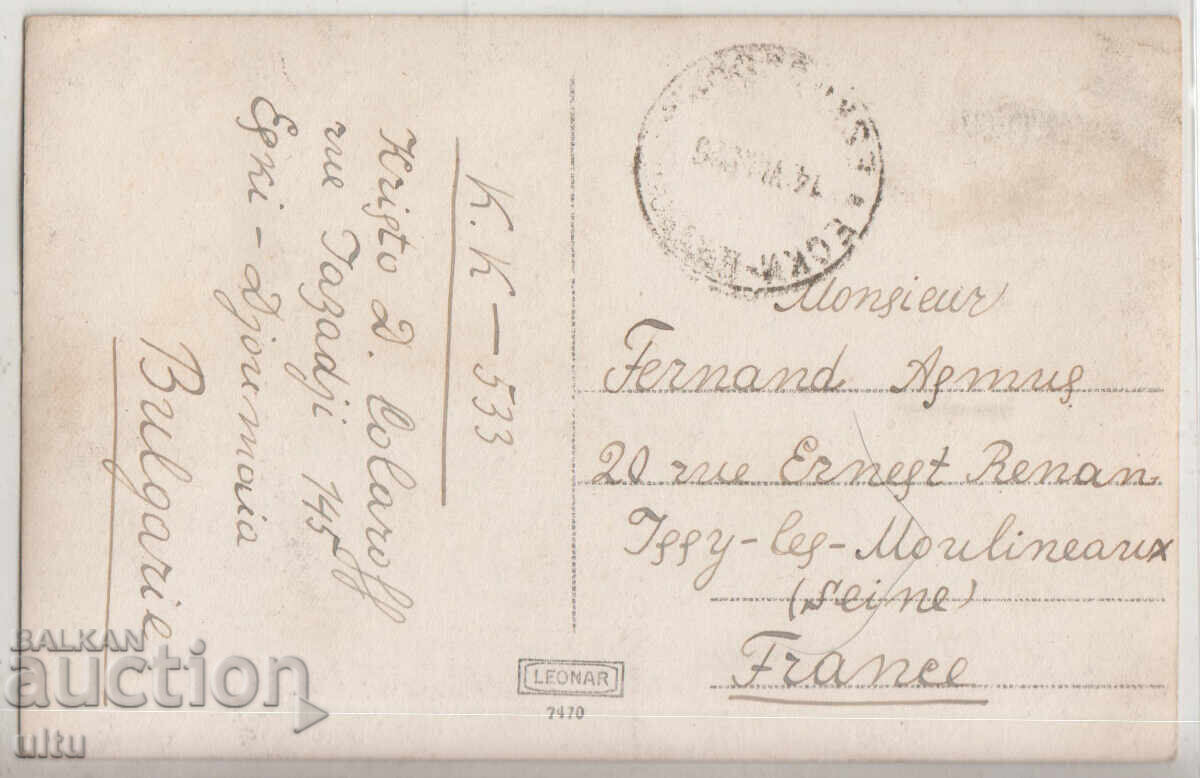 K. K – 533
Kristo D. Colaroff
rue Tazadji 145
Eski – Djoumaia
Bulgarie
14 VII
Monsieur
Fernand Asmus
20 rue Ernest Renan
Issy-les-Moulineaux
(Seine)
France
LEONAR
7470
BALKAN
auction
ultu